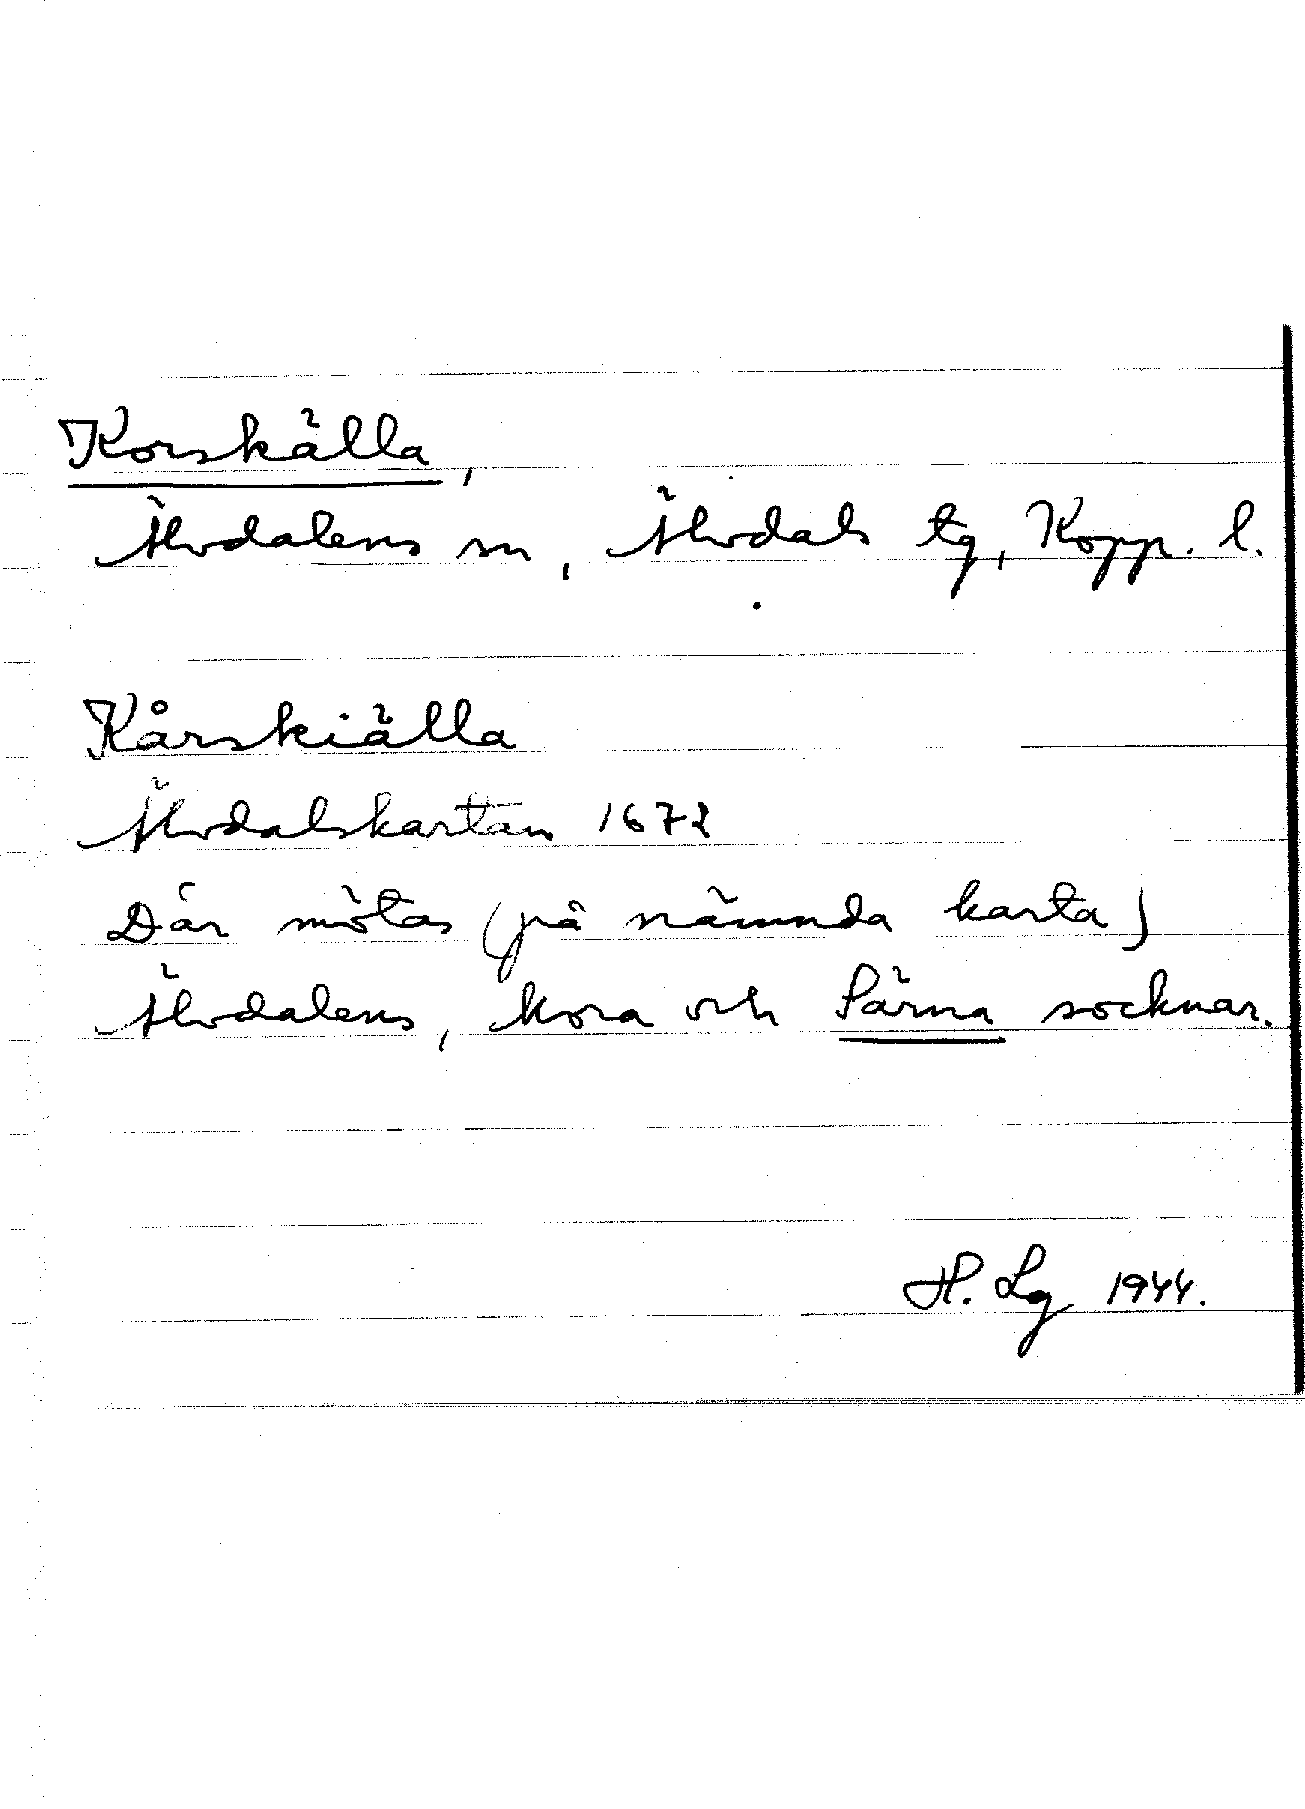 Korskälla,
Älvdalens sn, Älvdals tg, Kopp. l.
Kårskiälla
Älvdalskartan 1672
Där mötas (på nämnda karta)
Älvdalens, Mora och Särna socknar.
H. Lg 1944.